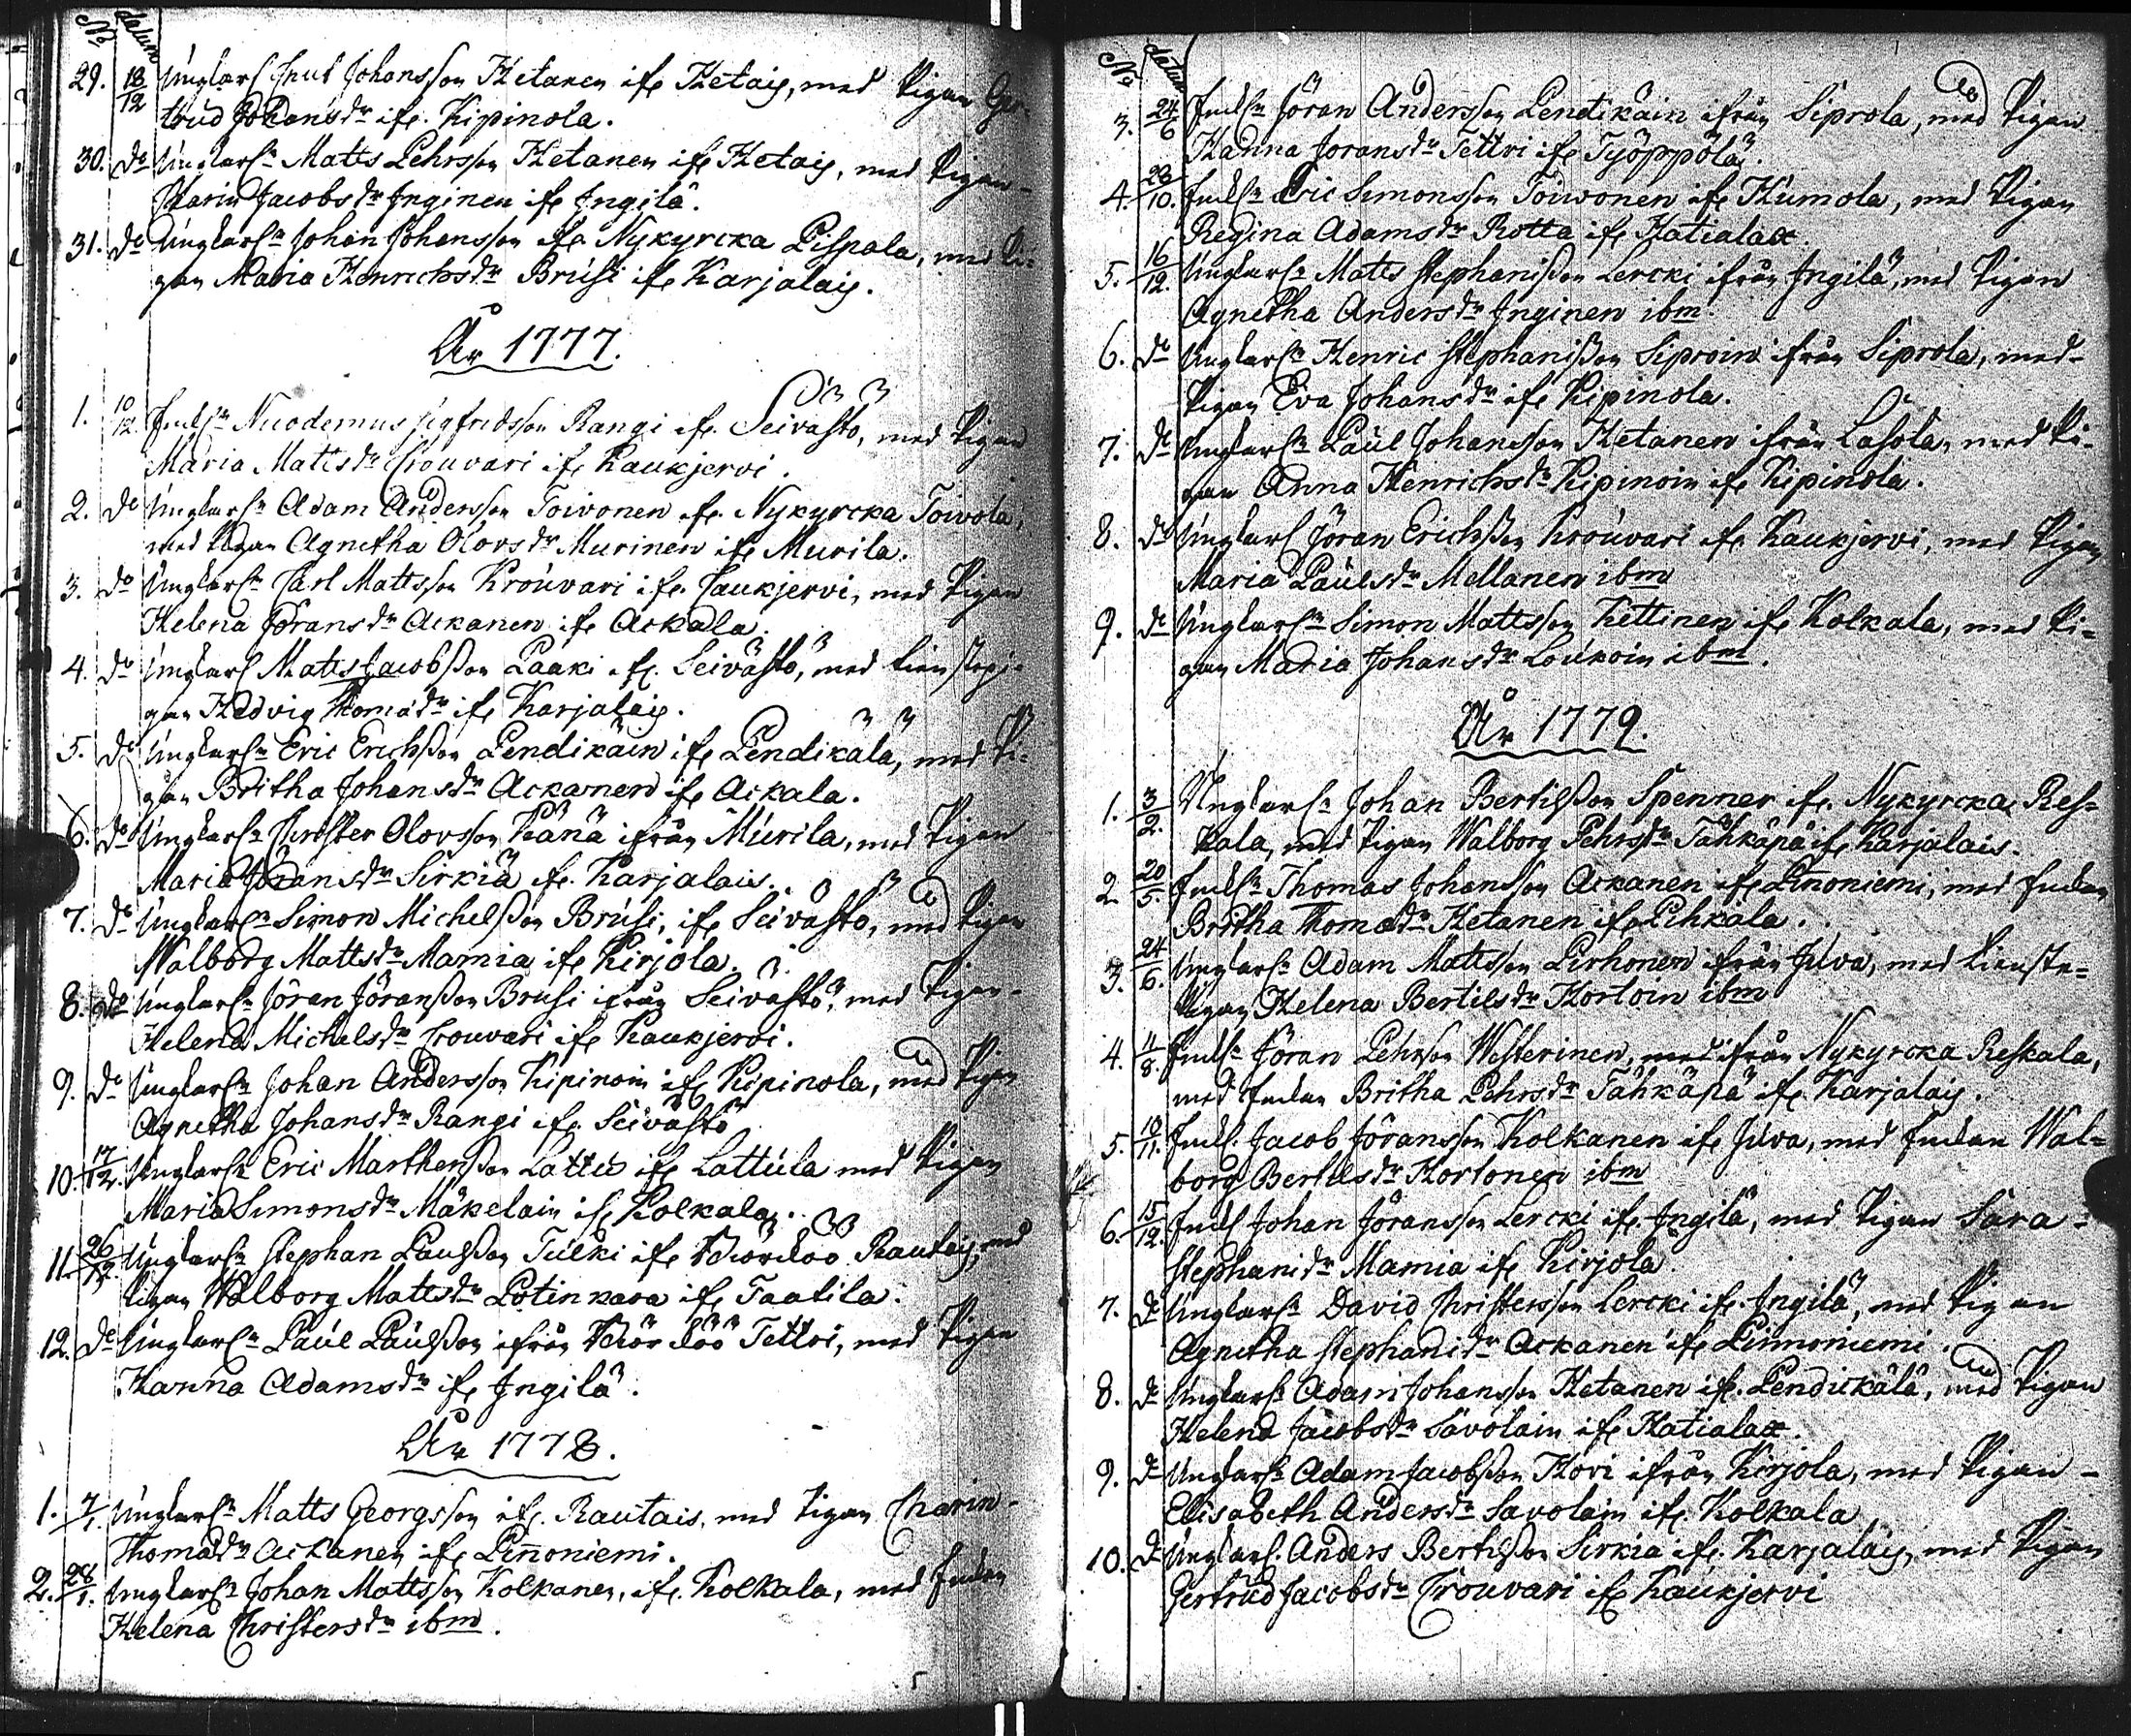 No datum
29. 18/12 Unglarl Knut Johansson Hetanen ifr. Hetais, med Pigan Ger-
trud Johansdr ifr. Kipinola.
30. do Unglarln Matts Pehrsson Hetanen ifr Hetais, med Pigan
Karin Jacobsdr Inginen ifr Ingilä.
31. do Unglarln Johan Johansson ifr Nykyrcka Lispala, med Pi-
gan Maria Henrichsdr Brusi ifr Karjalais.
År 1777.
1. 10/12 Enkln Nicodemus Sigfridsson Rangi ifr. Seivästö, med Pigan
Maria Mattsdr Crouvari ifr Kaukjervi.
2. do Unglarln Adam Andersson Toivonen ifr. Nykyrcka Toivola,
med Pigan Agnetha Olovsdr Murinen ifr Murila.
3. do Unglarln Carl Mattsson Krouvari ifr. Kaukjervi, med Pigan
Helena Göransdr Ackanen ifr Ackala.
4. do Unglarl Matts Jacobsson Paaki ifr. Seivästö, med tienstepi-
gan Hedvig Thomædr ifr Karjalais.
5. do Unglarln Eric Erichsson Pendikäin ifr Pendikälä, med Pi-
gan Britha Johansdr Ackanen ifr Ackala.
6. do Unglarln Christer Olovsson Känä ifrån Murila, med Pigan
Maria Göransdr Sirkiä ifr. Karjalais.
7. do Unglarln Simon Michelsson Brusi, ifr Seivästö, med Pigan
Walborg Mattsdr Mamia ifr Kirjola.
8. do Unglarln Jöran Jöransson Brusi ifrån Seivästö, med Pigan
Helena Michelsdr Crouvari ifr Kaukjervi.
9. do Unglarln Johan Andersson Kipinoin ifr Kipinola, med Pigan
Agnetha Johansdr Rangi ifr Seivästö
10. 17/12. Unglarln Eric Marthensson Lattu ifr Lattula med Pigan
Maria Simonsdr Mäkelain ifr Kolkala.
11. 26/12. Unglarln Stephan Paulsson Tulki ifr Rautais, med
Pigan Walborg Mattsdr Potinkara ifr Taatila.
12. do Unglarln Paul Paulsson ifrån Tettoi, med Pigan
Hanna Adamsdr ifr Ingilä.
År 1778.
1. 7/1. Unglarln Matts Georgsson ifr. Rautais, med Pigan Charin
Thomædr Ackanen ifr Linnoniemi.
2. 28/1. Unglarln Johan Mattsson Kolkanen, ifr. Kolkala, med Enkan
Helena Christersdr ibm.
No datum
3. 24/6 Enkln Jöran Andersson Pendikäin ifrån Siprola, med Pigan
Hanna Joransdr Tettri ifr Työppölä.
4. 28/10. Enkln Eric Simonsson Toiwonen ifr Humola, med Pigan
Regina Adamsdr Rotta ifr Hatialax.
5. 16/12. Unglarln Matts Stephanisson Lercki ifrån Ingilä, med Pigan
Agnetha Andersdr Inginen ibm.
6. do Unglarln Henric Stephanisson Siproin ifrån Siprola, med
Pigan Eva Johansdr ifr Kipinola.
7. do Unglarln Paul Johansson Hetanen ifrån Lasola, med Pi-
gan Anna Henrichsdr Kipinoin ifr Kipinola.
8. do Unglarl Jöran Erichsson Krouvari ifr Kaukjervi, med Pigan
Maria Paulsdr Mellanen ibm
9. do Unglarln Simon Mattsson Kettinen ifr Kolkala, med Pi-
gan Maria Johansdr Loukoin ibm.
År 1779.
1. 3/2. Unglarln Johan Bertilsson Spenner ifr. Nykyrcka Res-
kala, med Pigan Walborg Pehrsdr Tähkäpä ifr Karjalais.
2. 20/5. Enkln Thomas Johansson Ackanen ifr Linnoniemi, med Enkan
Britha Thomædr Hetanen ifr Pihkala.
3. 24/6. Unglarln Adam Mattsson Pirhonen ifrån Juva, med tienste-
Pigan Helena Bertilsdr Hortoin ibm
4. 11/8. Enkln Jöran Pehrsson Westerinen, med ifrån Nykyrcka Reskala,
med Enkan Britha Pehrsdr Tähkäpä ifr Karjalais.
5. 10/11. Enkl. Jacob Jöransson Kolkanen ifr Juva, med Enkan Wal-
borg Bertilsdr Hortonen ibm
6. 15/12. Enkl Johan Jöransson Lercki ifr. Ingilä, med Pigan Sara
Stephanidr Mamia ifr Kirjola
7. do Unglarln David Christersson Lercki ifr. Ingilä, med Pigan
Agnetha Stephanidr Ackanen ifr Linnoniemi.
8. do Unglarln Adam Johansson Hetanen ifr. Pendickälä, med Pigan
Helena Jacobsdr Savolain ifr Hatialax.
9. do Unglarln Adam Jacobsson Hovi ifrån Kirjola, med Pigan
Elisabeth Andersdr Savolain ifr Kolkala
10. do Unglarl. Anders Bertilsson Sirkiä ifr. Karjalais, med Pigan
Gertrud Jacobsdr Crouvari ifr Kaukjervi